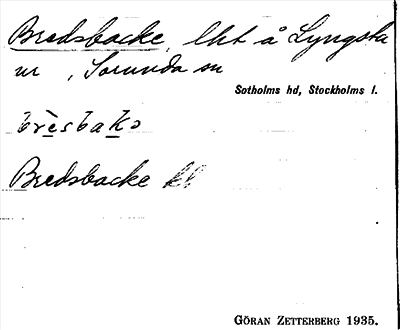 Bredsbacke, lht å Lyngsta
nr , Sorunda sn
Sotholms hd, Stockholms l.
brèsbako
Bredsbacke kl
GÖRAN ZETTERBERG 1935.